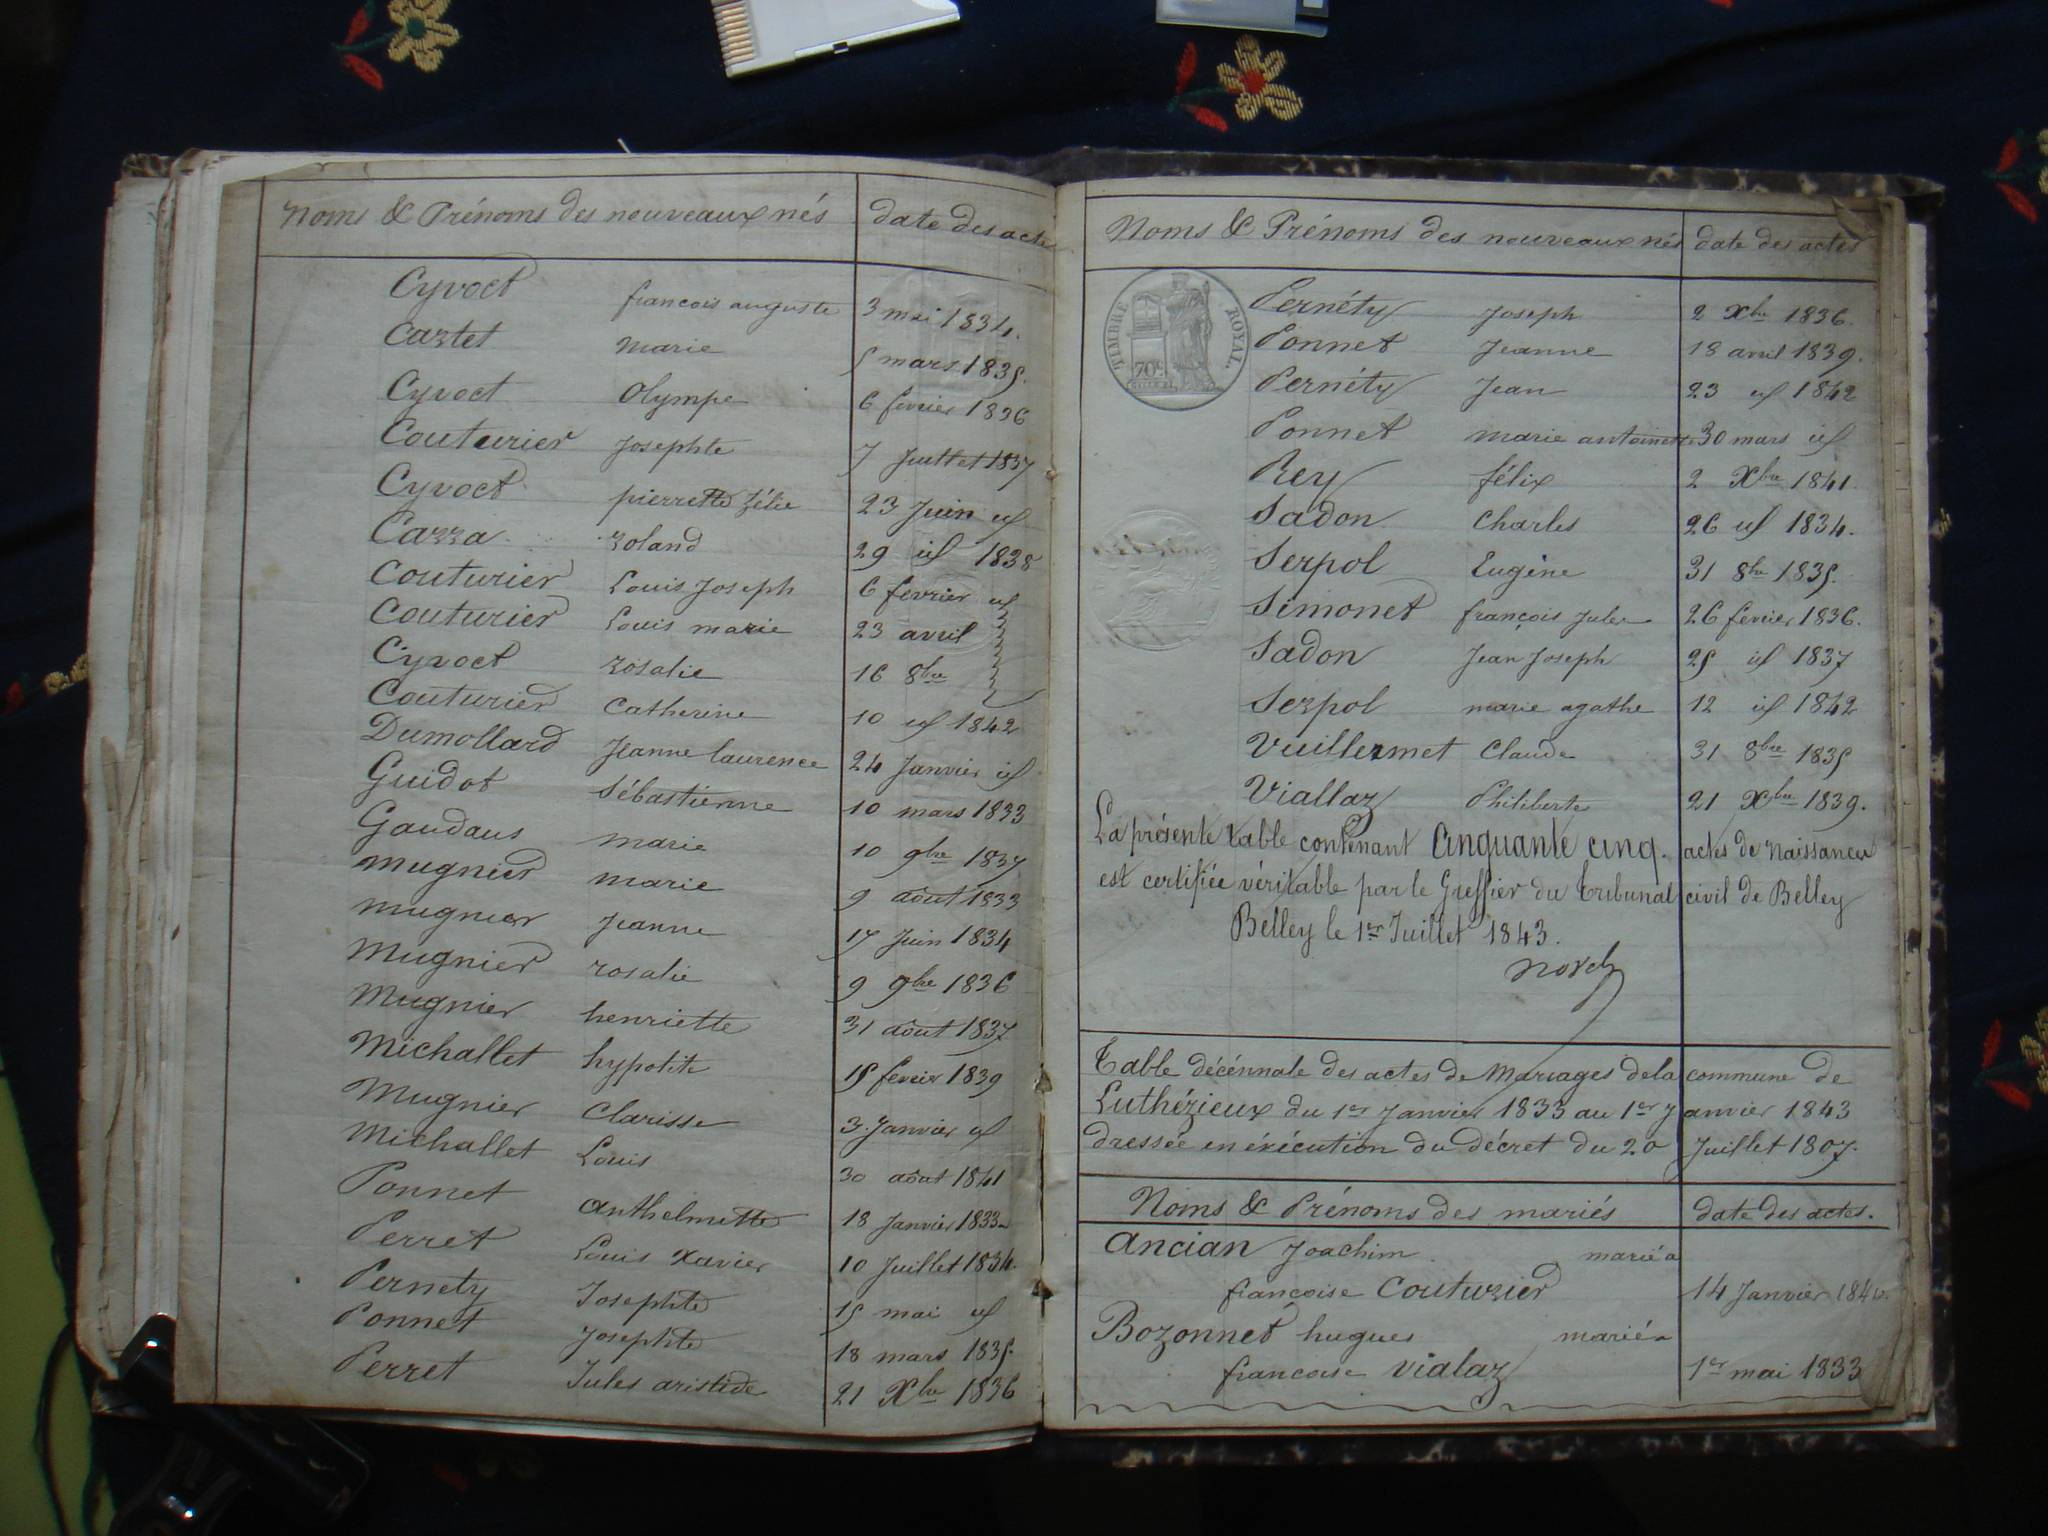 Noms & Prénoms des nouveaux nés date des acte
Cyvoct francois auguste 3 mai 1834.
Cartet marie 5 mars 1835.
Cyvoct Olympe 6 fevrier 1836
Couturier Josephte 7 Juillet 1837
Cyvoct pierrette Zélie 23 Juin id
Carra roland 29 id 1838
Couturier Louis Joseph 6 fevrier id
Couturier Louis marie 23 avril
Cyvoct rosalie 16 8bre
Couturier Catherine 10 id 1842
Dumollard Jeanne laurence 24 Janvier id
Guidot Sébastienne 10 mars 1833
Gaudaus marie 10 9bre 1837
Mugnier marie 9 août 1833
Mugnier Jeanne 17 Juin 1834
Mugnier rosalie 9 9bre 1836
Mugnier henriette 31 août 1837
Michallet hypolite 15 fevrier 1839
Mugnier Clarisse 3 Janvier id
Michallet Louis 30 août 1841
Ponnet Anthelmette 18 Janvier 1833
Perret Louis Xavier 10 Juillet 1834.
Pernety Josephte 15 mai id
Ponnet Josephte 18 mars 1835.
Perret Jules aristide 21 Xbre 1836
Noms & Prénoms des nouveaux nés date des actes
TIMBRE ROYAL
70c
Pernéty Joseph 2 Xbre 1836.
Ponnet Jeanne 18 avril 1839.
Pernéty Jean 23 id 1842
Ponnet marie antoinette 30 mars id
Rey félix 2 Xbre 1841.
Sadon Charles 26 id 1834.
Serpol Eugène 31 8bre 1835.
Simonet françois Jules 26 fevrier 1836.
Sadon Jean Joseph 25 id 1837
Serpol marie agathe 12 id 1842
Vuillermet Claude 31 8bre 1835
Viallaz Philiberte 21 Xbre 1839.
La présente table contenant Cinquante cinq. actes de Naissances
est certifiée véritable par le Greffier du Tribunal civil de Belley
Belley le 1er Juillet 1843.
Table décénnale des actes de Mariages de la commune de
Luthézieux du 1er Janvier 1833 au 1er Janvier 1843
dressée en éxécution du décret du 20 Juillet 1807.
Noms & Prénoms des mariés date des actes.
Ancian Joachim marié a
francoise Couturier 14 Janvier
Bozonnet hugues marié a
francoise Vialaz 1er mai 1833